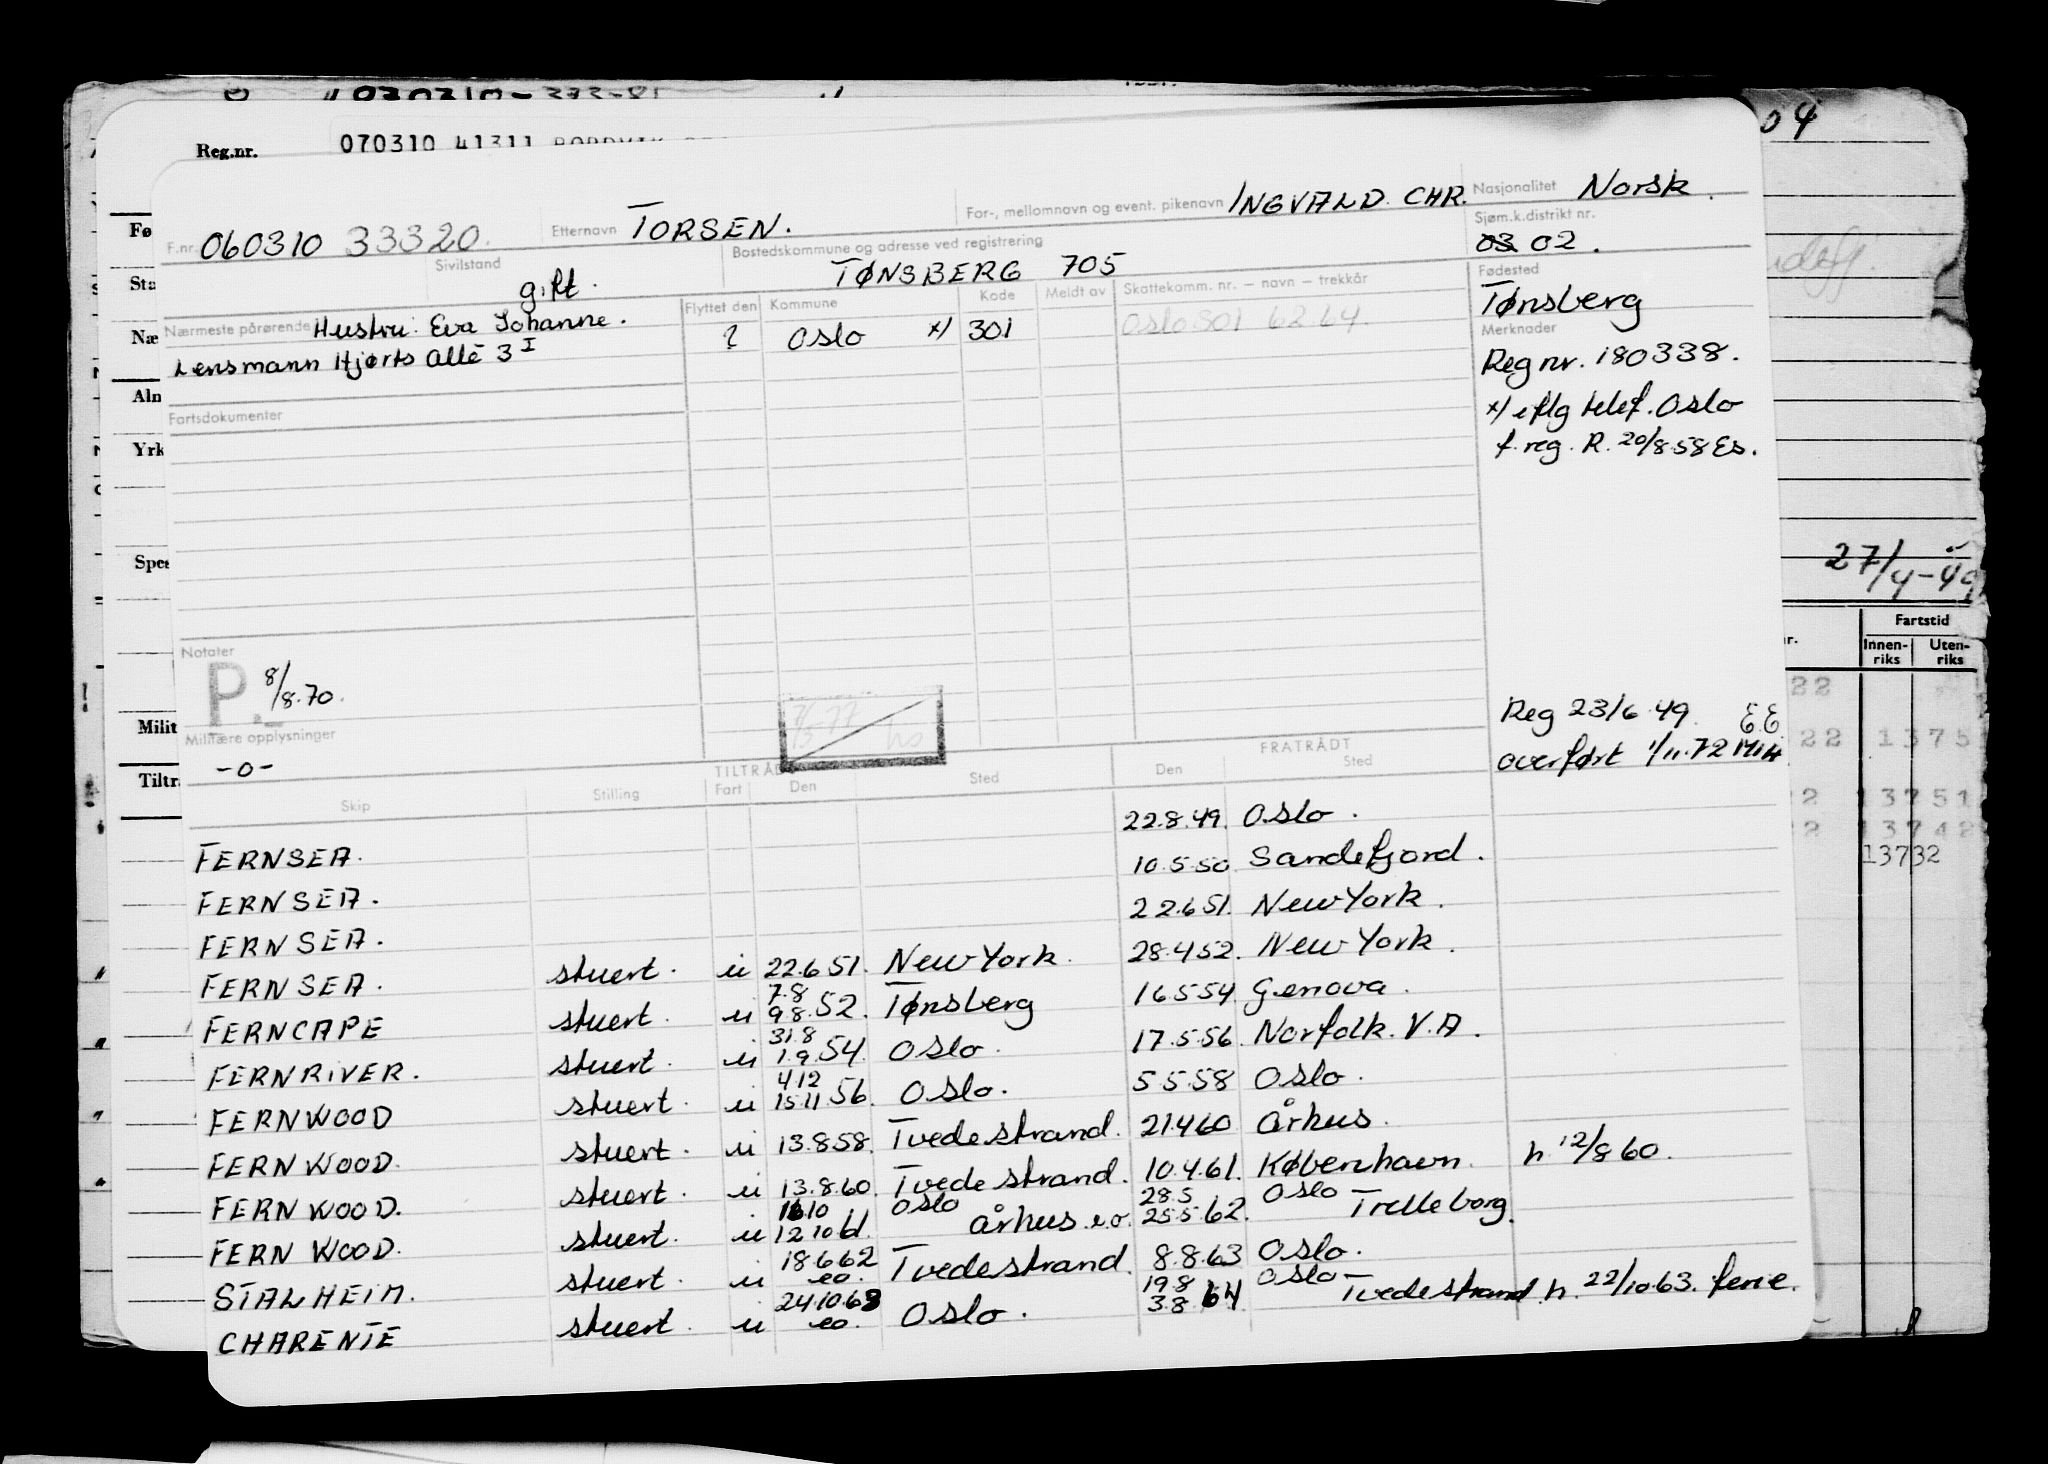 04
Reg.nr. 070310 41311
Nasjonalitet Norsk.
For-, mellomnavn og event. pikenavn INGVALD CHR.
Etternavn TORSEN.
F.nr. 060310 33320.
Sjøm.k.distrikt nr.
03 02.
Sivilstand
gift.
Bostedskommune og adresse ved registrering
TØNSBERG 705
Fødested
Tønsberg
Nærmeste pårørende Hustru: Eva Johanne.
Lensmann Hjorts allè 3 I
Flyttet den Kommune Kode Meldt av Skattekomm. nr. – navn – trekkår
? Oslo x/ 301 Oslo 301 62 64.
Merknader
Reg nr. 180338.
x/ iflg telef. Oslo
f. reg. R. 20/8.58 Es.
Fartsdokumenter
27/4-49
Fartstid
Innen-riks Uten-riks
Notater
P. 8/8.70.
Reg 23/6.49. EE
overført 1/11.72
Militære opplysninger
-o-
TILTRÅDT FRATRÅDT
Skip Stilling Fart Den Sted Den Sted
FERNSEA. 22.8.49. Oslo.
FERNSEA. 10.5.50 Sandefjord.
FERNSEA. 22.6.51. New York.
FERNSEA. stuert. u 22.6.51. New York. 28.4.52. New York.
FERNCAPE stuert. u 7.8 9.8.52. Tønsberg 16.5.54. Genova.
FERNRIVER. stuert. u 31.8 1.9.54. Oslo. 17.5.56. Norfolk. V.A.
FERNWOOD stuert. u 4.12 15.11.56. Oslo. 5.5.58 Oslo.
FERNWOOD. stuert. u 13.8.58. Tvedestrand. 21.4.60 århus.
FERNWOOD. stuert. u 13.8.60. Tvedestrand. 10.4.61. København. h. 12/8 60.
FERNWOOD. stuert. u 16.10 12.10.61. Oslo århus e.o. 28.5 25.5.62. Oslo Trelleborg.
STALHEIM. stuert. u 18.6.62 eo. Tvedestrand. 8.8.63 Oslo.
CHARENTE stuert. u 24.10.63 eo. Oslo. 19.8 3.8.64 Oslo Tvedestrand. h. 22/10.63. ferie.
13751
13742
13732